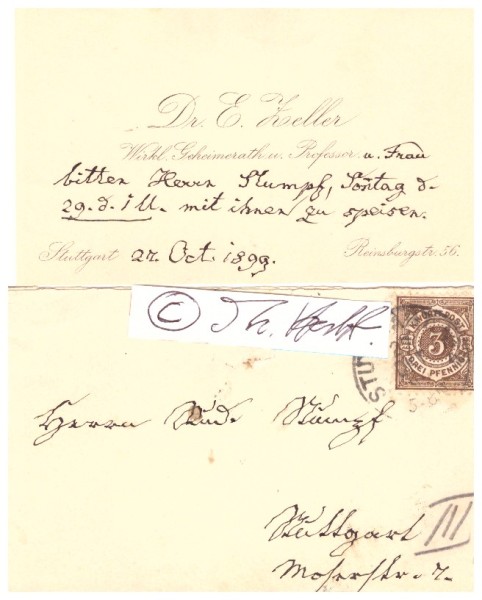 Dr. E. Zeller
Wirkl. Geheimerath u. Professor u. Frau
bitten Herrn Stumpf, Sontag d.
29. d. 1 U. mit ihnen zu speisen.
Stuttgart 27. Oct. 1899.
Reinsburgstr. 56.
©
3
DREI PFENNIG
STU
Herrn Stud. Stumpf
Stuttgart
III
Moserstr. 7.